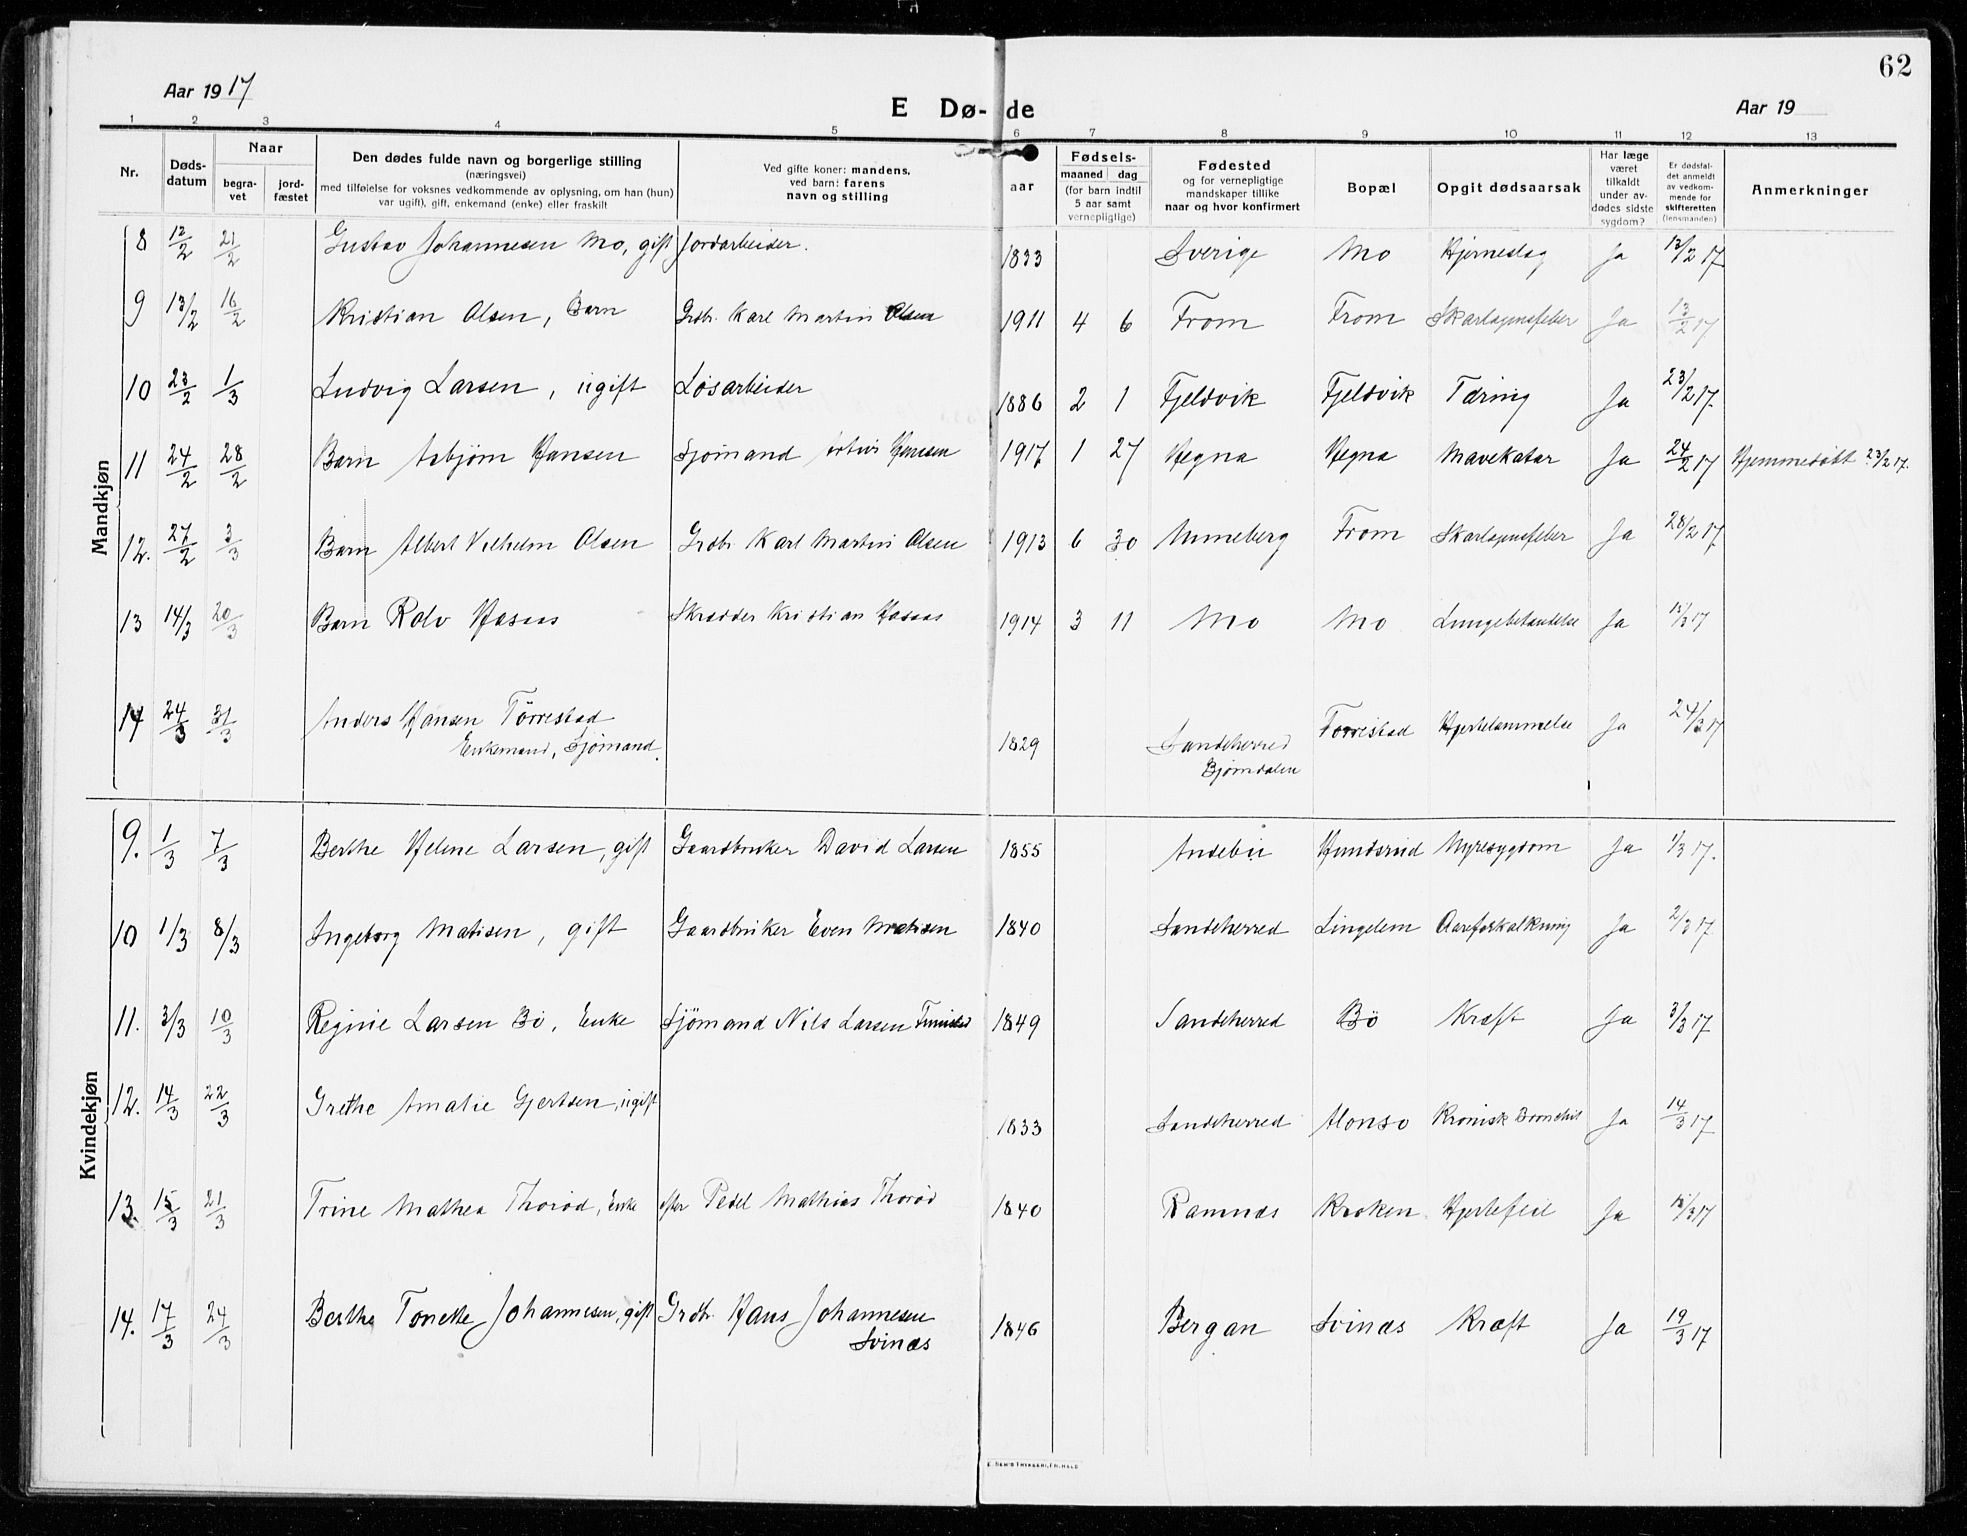 62
Aar 1917
E Dø- de
Aar 19
1 2 3 4 5 6 7 8 9 10 11 12 13
Nr.
Døds-
datum
Naar
begra-
vet
jord-
fæstet
Den dødes fulde navn og borgerlige stilling
(næringsvei)
med tilføielse for voksnes vedkommende av oplysning, om han (hun)
var ugift), gift, enkemand (enke) eller fraskilt
Ved gifte koner: mandens,
ved barn: farens
navn og stilling
aar
Fødsels-
maaned dag
(for barn indtil
5 aar samt
vernepligtige)
Fødested
og for vernepligtige
mandskaper tillike
naar og hvor konfirmert
Bopæl
Opgit dødsaarsak
Har læge
været
tilkaldt
under av-
dødes sidste
sygdom?
Er dødsfal-
det anmeldt
av vedkom-
mende for
skifteretten
(lensmanden)
Anmerkninger
Mandkjøn
8 12/2 21/2 Gustav Johannesen Mo, gift Jordarbeider. 1833 Sverige Mo Hjerneslag Ja 13/2 17
9 13/2 16/2 Kristian Olsen, Barn Grdbr. Karl Martin Olsen 1911 4 6 From From Skarlagensfeber Ja 13/2 17
10 23/2 1/3 Ludvig Larsen, ugift Løsarbeider 1886 2 1 Fjeldvik Fjeldvik Tæring Ja 23/2 17.
11 24/2 28/2 Barn Asbjørn Hansen Sjømand Hansen 1917 1 27 Hegna Hegna Mavekatar Ja 24/2 17 Hjemmedöbt 23/2 17.
12. 27/2 3/3 Barn Albert Vilhelm Olsen Grdbr Karl Martin Olsen 1913 6 30 Unneberg From Skarlagensfeber Ja 28/2 17
13 14/3 20/3 Barn Rolv Hasaas Skrædder Kristian Hasaas 1914 3 11 Mo Mo Lungebetændelse Ja 15/3 17
14 24/3 31/3 Anders Hansen Törrestad 1829 Sandeherred Torrestad Hjertelammelse Ja 24/3 17
Enkemand, Sjømand. Bjørndalen
Kvindekjøn
9. 1/3 7/3 Berthe Helene Larsen, gift Gaardbruker David Larsen 1855 Andebu Hundsrud Nyresygdom Ja 1/3 17.
10 1/3 8/3 Ingeborg Matisen, gift Gaardbruker Even Matisen 1840 Sandeherred Lingelem Aareforkalkning Ja 2/3 17.
11. 3/3 10/3 Regine Larsen Bö, Enke Sjömand Nils Larsen 1849 Sandeherred Bö Kræft Ja 3/3 17
12. 14/3 22/3 Grethe Amalie Gjertsen, ugift 1833 Sandeherred Alonso Kronisk Bronchit Ja 14/3 17
13. 15/3 21/3 Trine Mathea Thorød, Enke efter Pedel Mathias Thorød 1840 Ramnæs Kroken Hjertefeil Ja 15/3 17
14. 17/3 24/3 Berthe Tonette Johannesen, gift Grdbr. Hans Johannesen 1846 Bergan Svinæs Kræft Ja 19/3 17
Svinæs